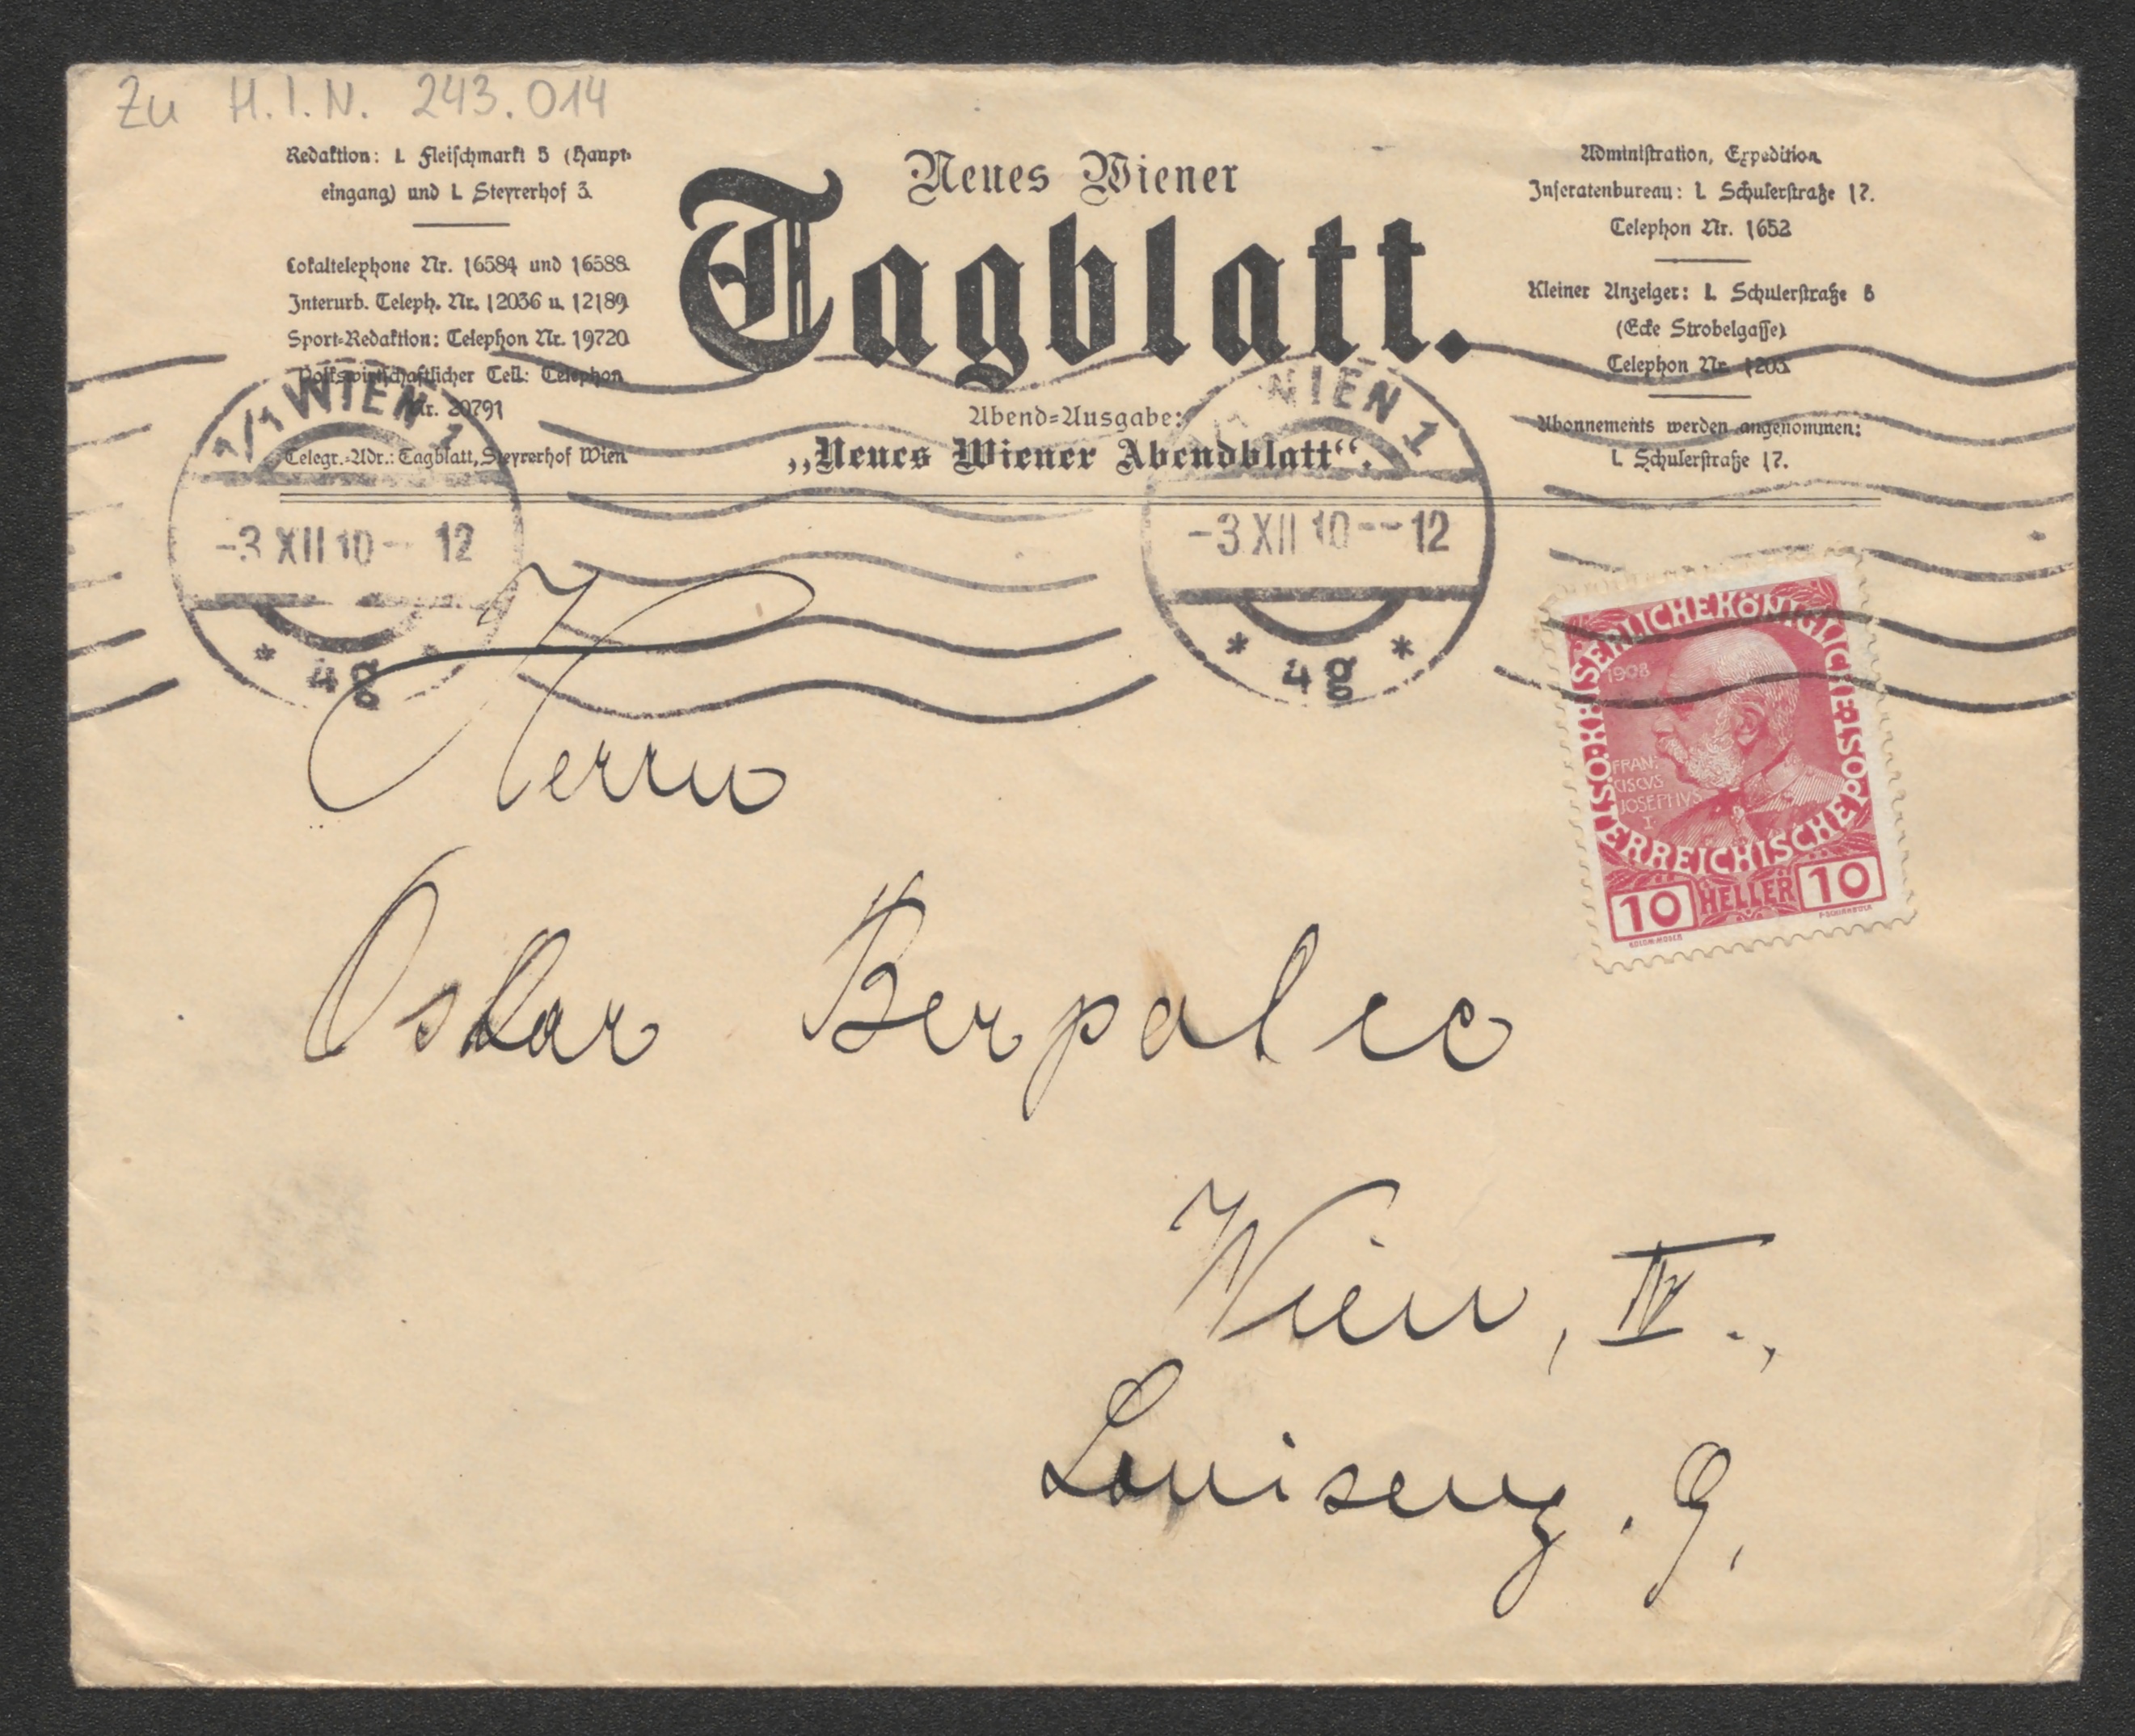 Zu H.I.N. 243.014
Redaktion: I. Fleischmarkt 5 (Haupt-
eingang) und I. Steyrerhof 3.
Lokaltelephone Nr. 16584 und 16588.
Interurb. Teleph. Nr. 12036 u. 12189.
Sport-Redaktion: Telephon Nr. 19720.
Volkswirtschaftlicher Teil: Telephon
Nr. 20791
Telegr.-Adr.: Tagblatt, Steyrerhof Wien
Neues Wiener
Tagblatt.
Abend-Ausgabe:
„Neues Wiener Abendblatt“.
Administration, Expedition
Inseratenbureau: I. Schulerstraße 17.
Telephon Nr. 1652
Kleiner Anzeiger: I. Schulerstraße 5
(Ecke Strobelgasse)
Telephon Nr. 1203.
Abonnements werden angenommen:
I. Schulerstraße 17.
1/1 WIEN 1
-3 XII 10-- 12
* 4g *
WIEN 1
-3 XII 10-- 12
* 4g *
KAISERLICHE KÖNIGLICHE
ÖSTERREICHISCHE POST
1908
FRAN
CISCVS
IOSEPHVS
I
10 HELLER 10
KOLOM·MOSER
F·SCHIRNBÖCK
Herrn
Oskar
Wien, IV.,
Louiseng. 9,